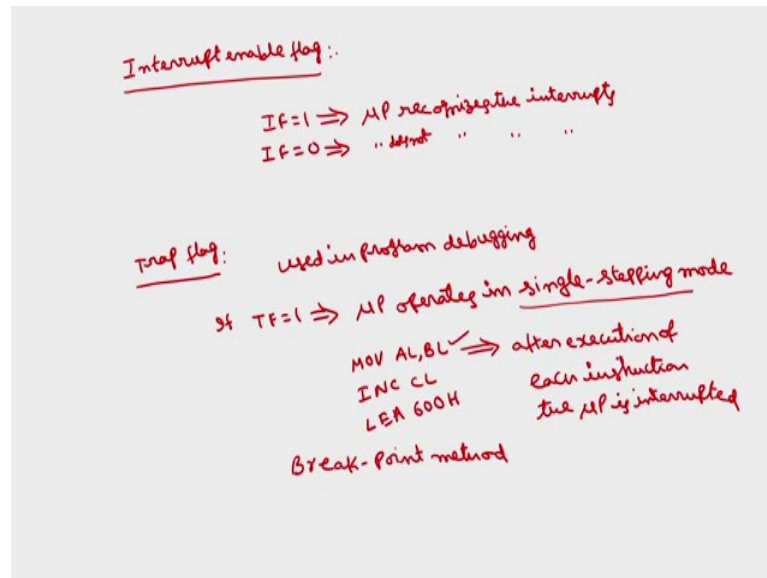 Interrupt enable flag :.
IF=1 ⇒ μP recognizes the interrupts
IF=0 ⇒ " does not " " "
Trap flag: used in program debugging
If TF=1 ⇒ μP operates in single-stepping mode
MOV AL,BL ✓ ⇒ after execution of
INC CL each instruction
LEA 600H the μP is interrupted
Break-Point method